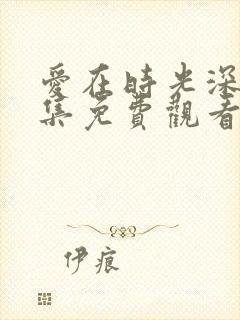 愛在時光深
集免費觀看
伊痕